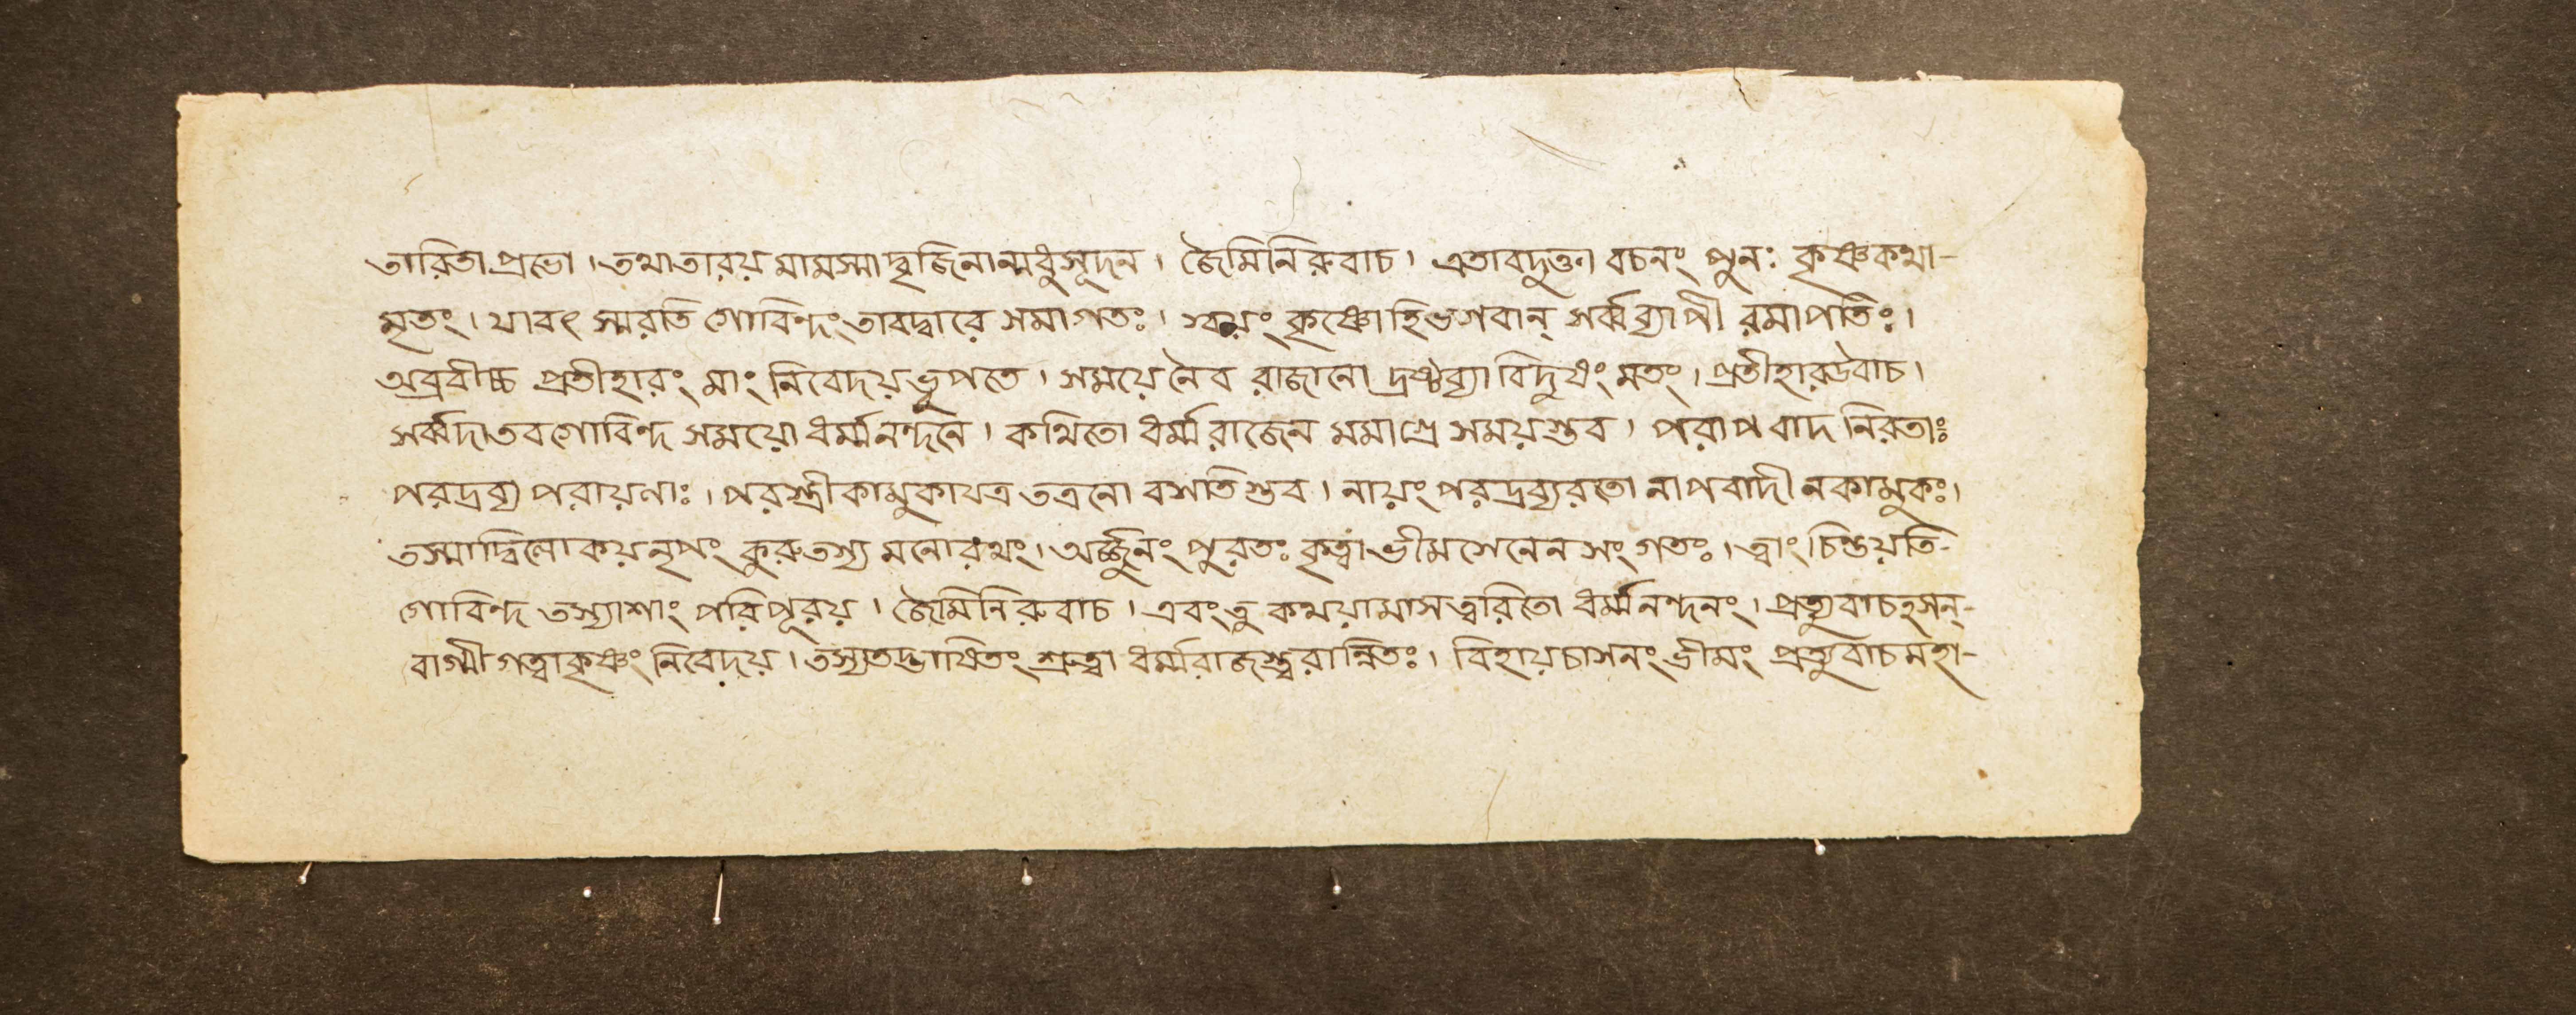 তারিতা প্রভো । তথা তারয় মামস্মাদ্বৃজিনান্মধুসূদন । জৈমিনিরুবাচ । এতাবদুক্ত্বা বচনং পুনঃ কৃষ্ণকথা-
মৃতং । যাবৎ স্মরতি গোবিন্দং তাবদ্দ্বারে সমাগতঃ । স্বয়ং কৃষ্ণো হি ভগবান্ সর্ব্বব্যাপী রমাপতিঃ ।
অব্রবীচ্চ প্রতীহারং মাং নিবেদয় ভূপতে । সময়ে নৈব রাজানো দ্রষ্টব্যা বিদুষং মতং । প্রতীহার উবাচ ।
সর্ব্বদা তব গোবিন্দ সময়ো ধর্ম্মনন্দনে । কথিতো ধর্ম্মরাজেন মমাগ্রে সময়স্তব । পরাপবাদ নিরতাঃ
পরদ্রব্য পরায়ণাঃ । পরস্ত্রীকামুকা যত্র তত্র নো বসতিস্তব । নায়ং পরদ্রব্যরতো নাপবাদী ন কামুকঃ ।
তস্মাদ্বিলোকয় নৃপং কুরু তস্য মনোরথং । অর্জ্জুনং পুরতঃ কৃত্বা ভীমসেনেন সংগতঃ । ত্বাং চিন্তয়তি-
গোবিন্দ তস্যাশাং পরিপূরয় । জৈমিনিরুবাচ । এবং তু কথয়ামাস ত্বরিতো ধর্ম্মনন্দনং । প্রত্যুবাচ হসন্-
বাগ্মী গত্বা কৃষ্ণং নিবেদয় । তস্য তদ্ভাষিতং শ্রুত্বা ধর্ম্মরাজস্ত্বরান্বিতঃ । বিহায় চাসনং ভীমং প্রত্যুবাচ মহা-